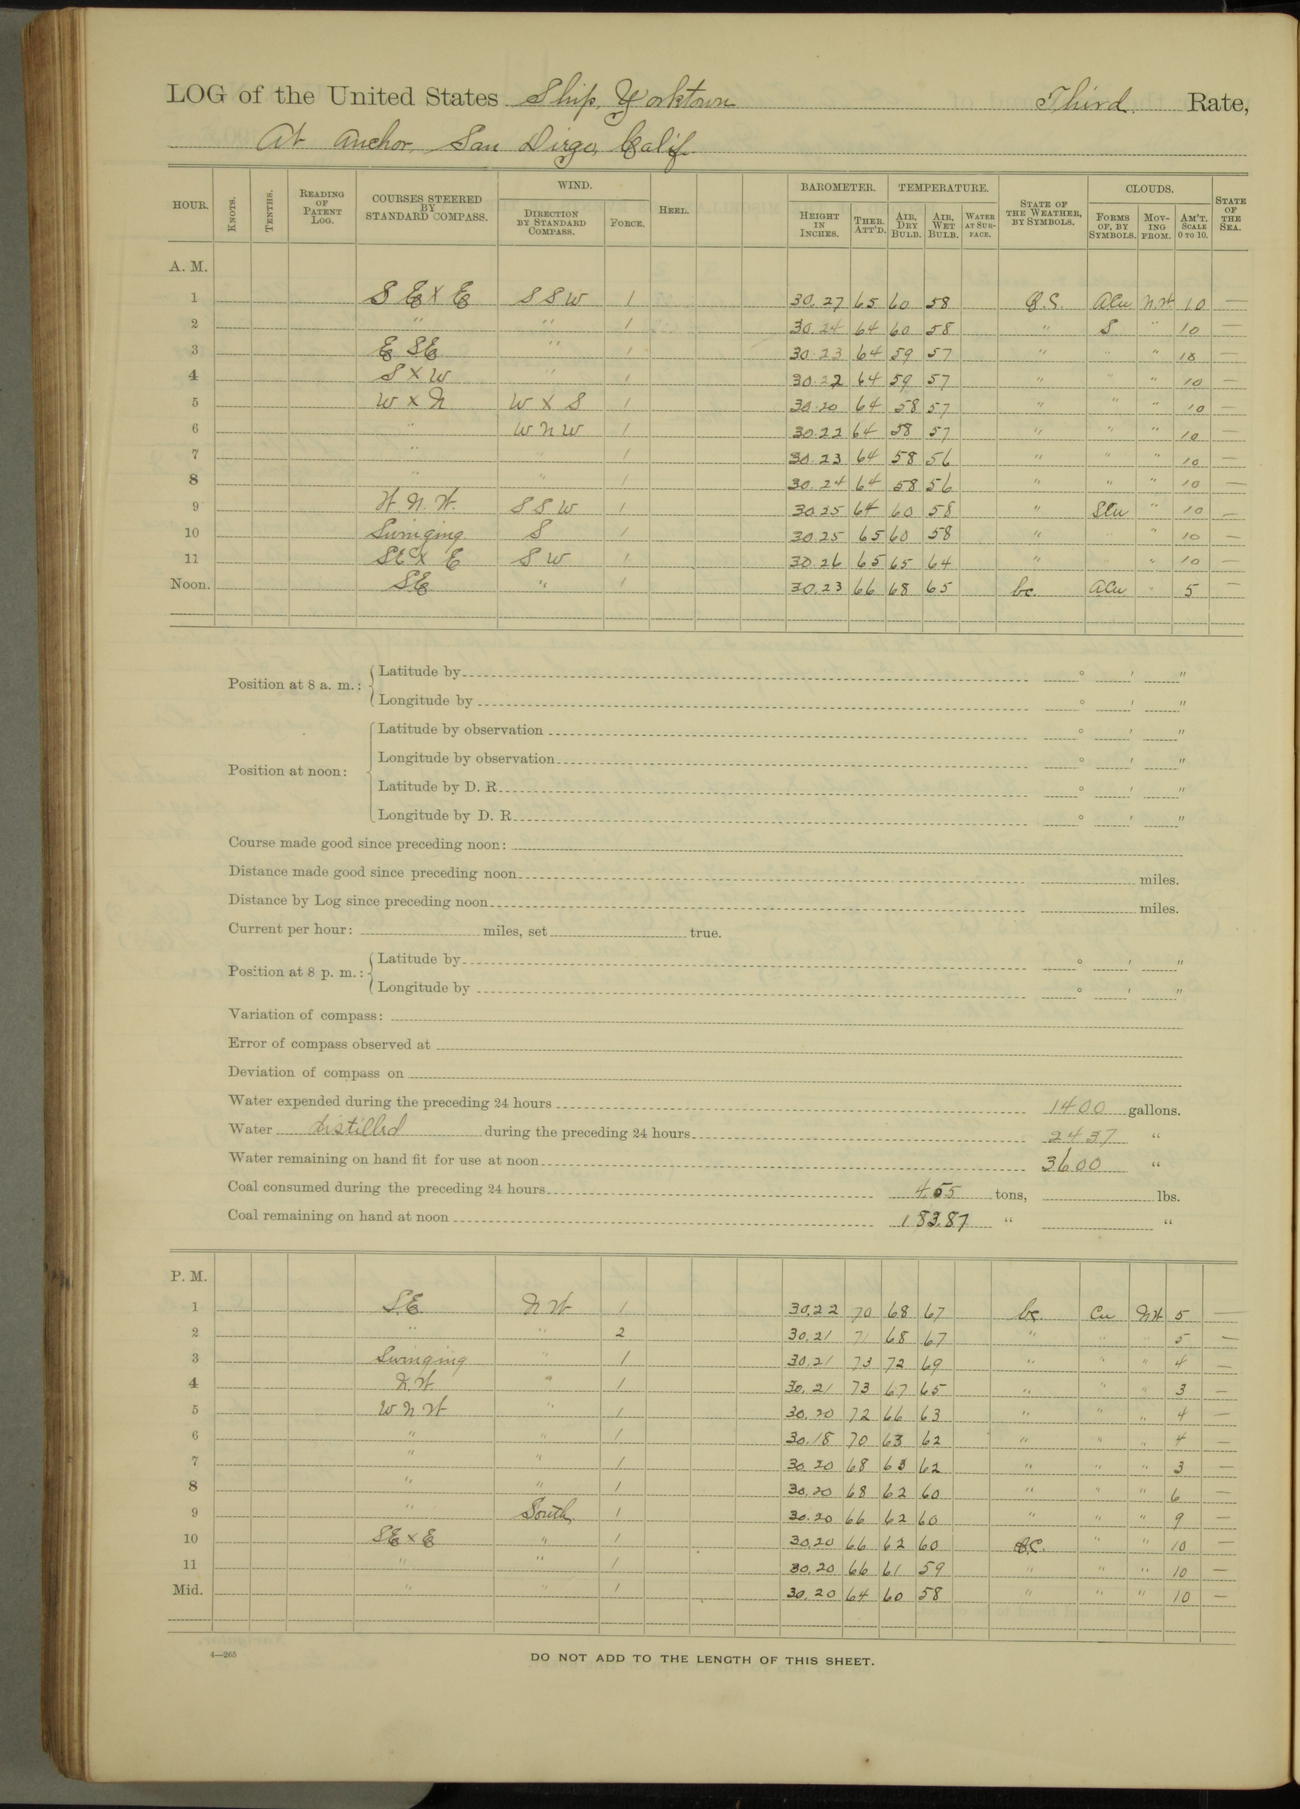 LOG of the United States Ship, Yorktown Third Rate,
At anchor, San Diego, Calif.
HOUR. KNOTS. TENTHS. READING OF PATENT LOG. COURSES STEERED BY STANDARD COMPASS. WIND. DIRECTION BY STANDARD COMPASS. FORCE. HEEL. BAROMETER. HEIGHT IN INCHES. THER. ATT'D. TEMPERATURE. AIR, DRY BULB. AIR, WET BULB. WATER AT SUR-FACE. STATE OF THE WEATHER, BY SYMBOLS. CLOUDS. FORMS OF, BY SYMBOLS. MOV-ING FROM. AM'T. SCALE 0 TO 10. STATE OF THE SEA.
A. M.
1 S E x E S S W 1 30.27 65 60 58 ACu N.W. 10 —
2 " " 1 30.24 64 60 58 " S " 10 —
3 E SE " 1 30.23 64 59 57 " " " 10 —
4 S x W " 1 30.22 64 59 57 " " " 10 —
5 W x N W x S 1 30.20 64 58 57 " " " 10 —
6 " W N W 1 30.22 64 58 57 " " " 10 —
7 " " 1 30.23 64 58 56 " " " 10 —
8 " " 1 30.24 64 58 56 " " " 10 —
9 W. N. W. S S W 1 30.25 64 60 58 " SCu " 10 —
10 Swinging S 1 30.25 65 60 58 " " " 10 —
11 SE x E S W 1 30.26 65 65 64 " " " 10 —
Noon. SE " 1 30.23 66 68 65 bc. ACu " 5 —
Position at 8 a. m.: Latitude by ° ' "
Longitude by ° ' "
Position at noon: Latitude by observation ° ' "
Longitude by observation ° ' "
Latitude by D. R. ° ' "
Longitude by D. R. ° ' "
Course made good since preceding noon:
Distance made good since preceding noon miles.
Distance by Log since preceding noon miles.
Current per hour: miles, set true.
Position at 8 p. m.: Latitude by ° ' "
Longitude by ° ' "
Variation of compass:
Error of compass observed at
Deviation of compass on
Water expended during the preceding 24 hours 1400 gallons.
Water distilled during the preceding 24 hours 2437 "
Water remaining on hand fit for use at noon 3600 "
Coal consumed during the preceding 24 hours 4.55 tons, lbs.
Coal remaining on hand at noon 183.87 " "
P. M.
1 S.E. N W 1 30.22 70 68 67 bc. Cu NW 5 —
2 " " 2 30.21 71 68 67 " " " 5 —
3 Swinging " 1 30.21 73 72 69 " " " 4 —
4 N.W. " 1 30.21 73 67 65 " " " 3 —
5 W N W " 1 30.20 72 66 63 " " " 4 —
6 " " 1 30.18 70 63 62 " " " 4 —
7 " " 1 30.20 68 63 62 " " " 3 —
8 " " 1 30.20 68 62 60 " " " 6 —
9 " South 1 30.20 66 62 60 " " " 9 —
10 SE x E " 1 30.20 66 62 60 " " 10 —
11 " " 1 30.20 66 61 59 " " " 10 —
Mid. " " 1 30.20 64 60 58 " " " 10 —
4—265
DO NOT ADD TO THE LENGTH OF THIS SHEET.